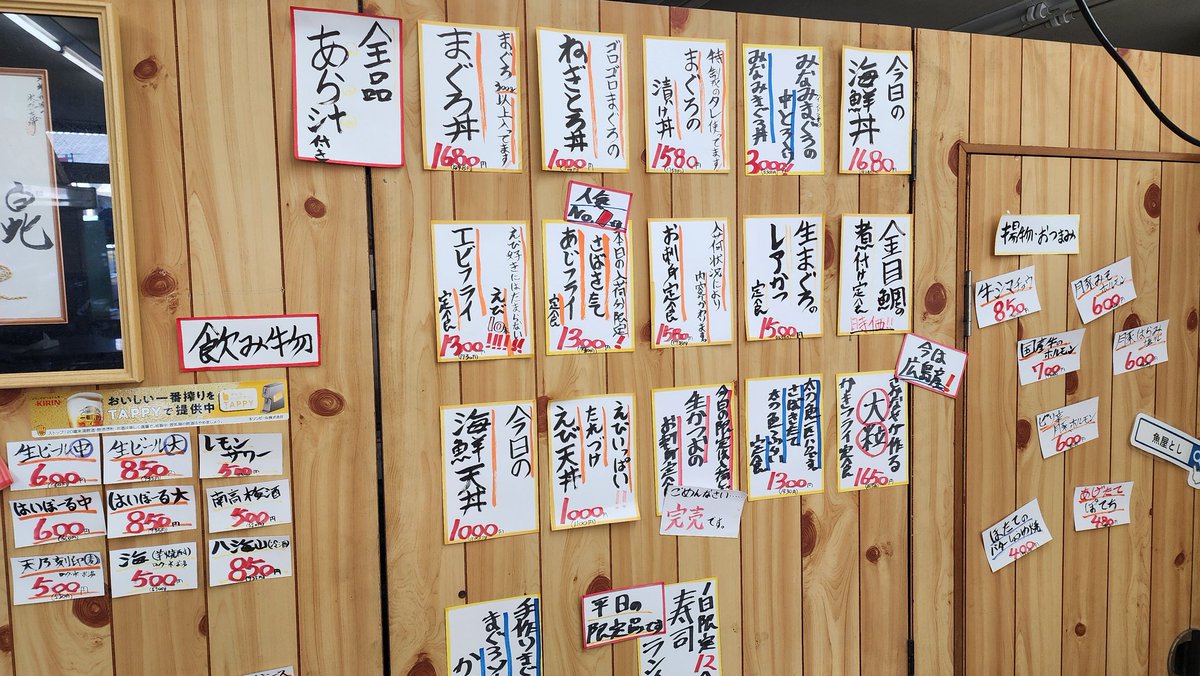 全品
あら汁付き
まぐろ300g以上入ってます
まぐろ丼
1680円
ゴロゴロまぐろの
ねぎとろ丼
1000円
特製のタレ使ってます
まぐろの
漬け丼
1580円
みなみまぐろの
中とろ入り
みなみまぐろ丼
3000円
今日の
海鮮丼
1680円
人気
No.1
えび好きにはたまらない
えび10!!!!!
エビフライ
定食
1300円
本日の入荷分限定
さばさきたて
あじフライ
定食
1300円
入荷状況により
内容かわります
お刺身定食
1580円
生まぐろの
レアかつ
定食
1500円
金目鯛の
煮付け定食
時価!!
今は
広島産!
今日の
海鮮天丼
1000円
えびいっぱい
たれづけ
えび天丼
1000円
生かつおの
お刺身定食
ごめんなさい
完売です。
1300円
大粒
カキフライ定食
1650円
手作り
まぐろ
平日の
限定品です
1日限定
寿司
ラン
12
飲み物
KIRIN
おいしい一番搾りを
TAPPYで提供中
TAPPY
生ビール中
600円
生ビール大
850円
レモン
サワー
500円
はいぼーる中
600円
はいぼーる大
850円
南高梅酒
500円
天乃刻印
500円
海
500円
八海山
850円
揚物・おつまみ
牛シマチョウ
850円
600円
国産牛のホルモン
700円
600円
600円
あげたて
ぽてち
480円
ほたての
バターしょうゆ焼
400円
魚屋とし